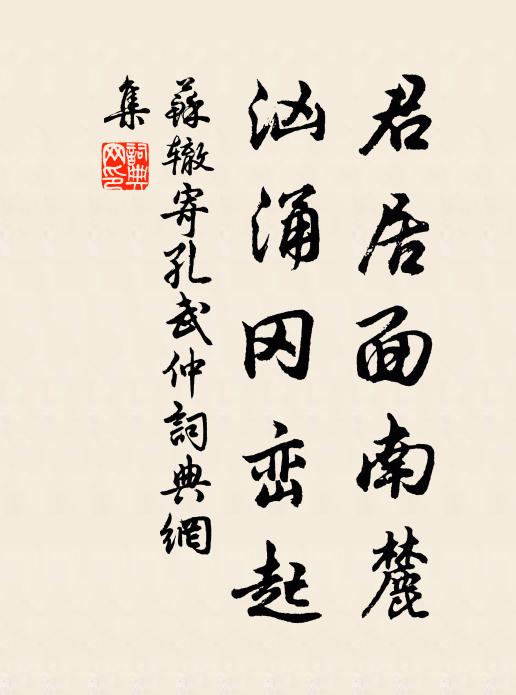 君居面南麓
汹涌冈峦起
蘇辙寄孔武仲詞典網
集
詞典
网印